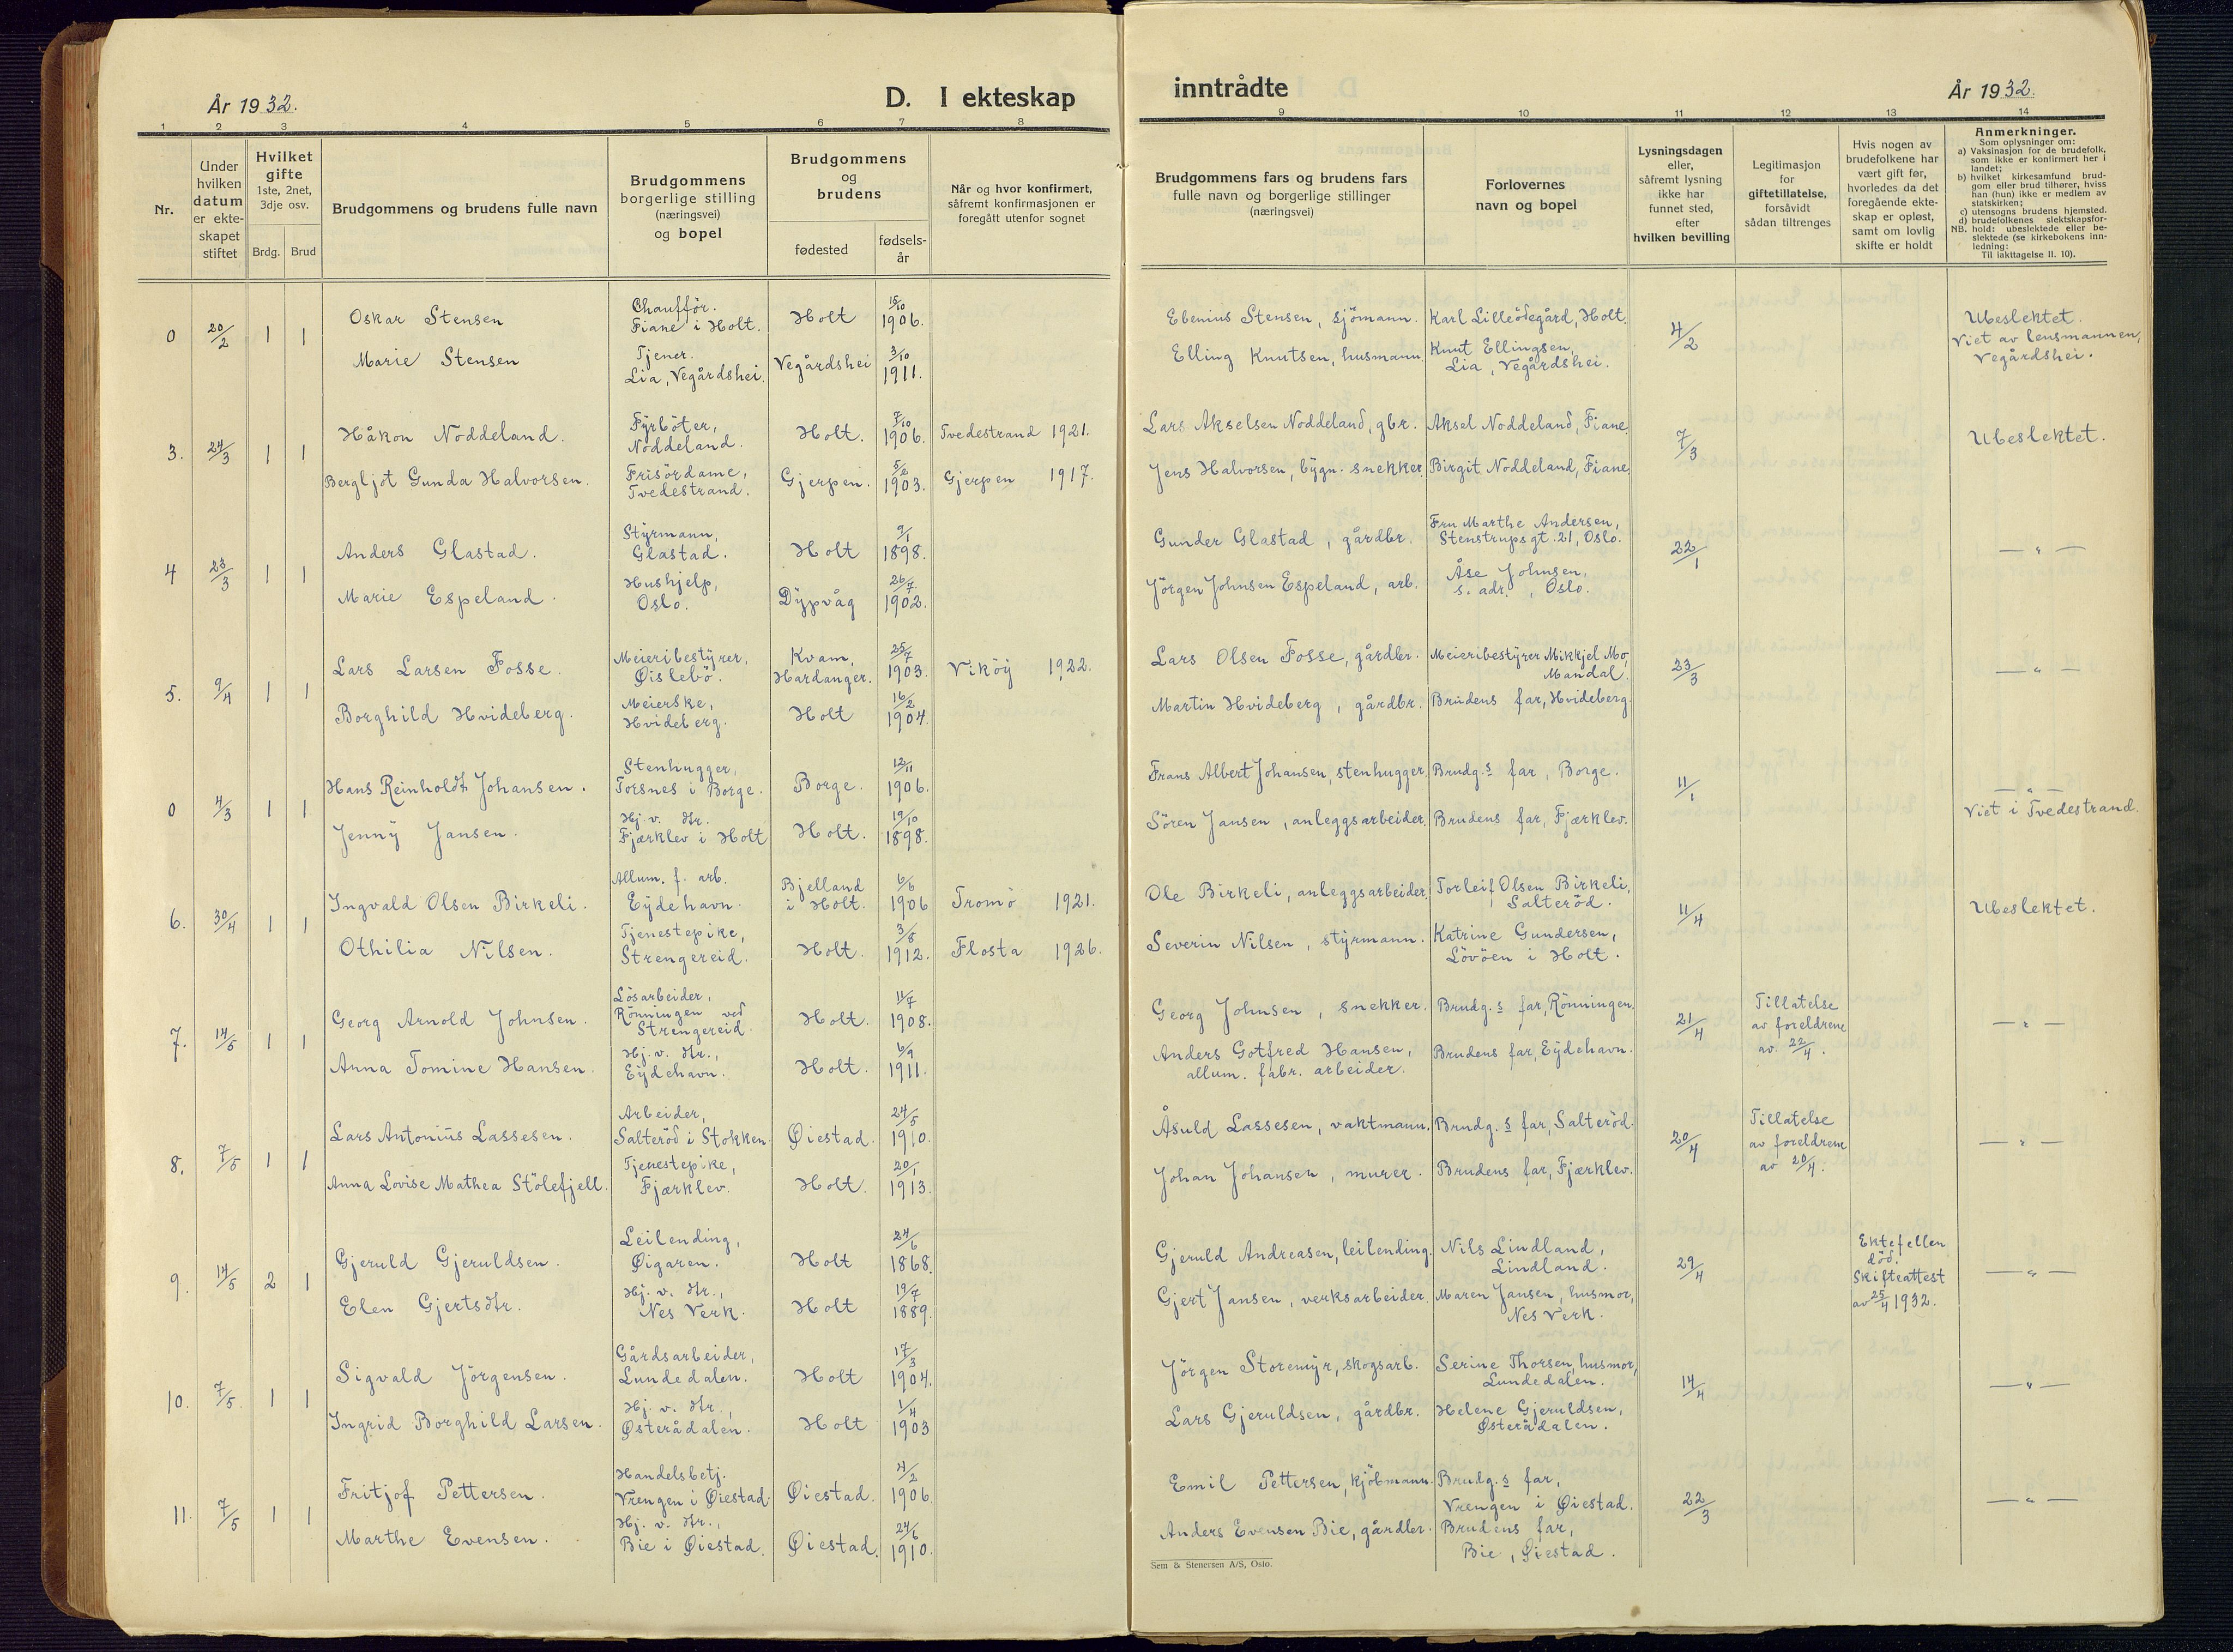 År 1932.
D. I ekteskap
inntrådte
År 1932.
1 2 3 4 5 6 7 8
9 10 11 12 13 14
Nr.
Under hvilken datum er ekteskapet stiftet
Hvilket gifte
1ste, 2net, 3dje osv.
Brdg. Brud
Brudgommens og brudens fulle navn
Brudgommens borgerlige stilling (næringsvei) og bopel
Brudgommens og brudens
fødested
fødselsår
Når og hvor konfirmert, såfremt konfirmasjonen er foregått utenfor sognet
Brudgommens fars og brudens fars fulle navn og borgerlige stillinger (næringsvei)
Forlovernes navn og bopel
Lysningsdagen eller, såfremt lysning ikke har funnet sted, efter hvilken bevilling
Legitimasjon for giftetillatelse, forsåvidt sådan tiltrenges
Hvis nogen av brudefolkene har vært gift før, hvorledes da det foregående ekteskap er opløst, samt om lovlig skifte er holdt
Anmerkninger.
Som oplysninger om:
a) Vaksinasjon for de brudefolk, som ikke er konfirmert her i landet;
b) hvilket kirkesamfund brudgom eller brud tilhører, hviss han (hun) ikke er medlem av statskirken;
c) utensogns brudens hjemsted.
d) brudefolkenes slektskapsforhold: ubeslektede eller beslektede (se kirkebokens innledning:
NB.
Til iakttagelse II. 10).
0 20/2 1 1
Oskar Stensen
Chauffør. Fiane i Holt.
Holt
15/10 1906.
Ebenius Stensen, sjömann.
Karl Lilleödegård, Holt.
4/2
Ubeslektet. Viet av lensmannen, Vegårdshei.
Marie Stensen
Tjener. Lia, Vegårdshei.
Vegårdshei
3/10 1911.
Elling Knutsen, husmann.
Knut Ellingsen, Lia, Vegårdshei.
3. 24/3 1 1
Håkon Noddeland.
Fyrböter, Noddeland.
Holt.
7/10 1906.
Tvedestrand 1921.
Lars Akselsen Noddeland, gbr.
Aksel Noddeland, Fiane.
7/3
Ubeslektet.
Bergljot Gunda Halvorsen.
Frisördame, Tvedestrand.
Gjerpen.
5/2 1903.
Gjerpen 1917.
Jens Halvorsen, bygn. snekker.
Birgit Noddeland, Fiane.
4 28/3 1 1
Anders Glastad.
Styrmann, Glastad.
Holt
9/1 1898.
Gunder Glastad, gårdbr.
Fru Marthe Andersen, Stenstrupsgt. 21, Oslo.
22/1
— " —
Marie Espeland.
Hushjelp, Oslo.
Dypvåg
26/7 1902.
Jörgen Johnsen Espeland, arb.
Åse Johnsen, s. adr., Oslo.
5. 9/4 1 1
Lars Larsen Fosse.
Meieribestyrer, Øislebö.
Kvam, Hardanger.
25/7 1903.
Viköy 1922.
Lars Olsen Fosse, gårdbr.
Meieribestyrer Mikkjel Mo, Mandal.
23/3
— " —
Borghild Hvideberg.
Meierske, Hvideberg.
Holt
16/2 1904.
Martin Hvideberg, gårdbr.
Brudens far, Hvideberg.
0 4/3 1 1
Hans Reinholdt Johansen.
Stenhugger, Torsnes i Borge.
Borge.
12/11 1906.
Frans Albert Johansen, stenhugger.
Brudg.s far, Borge.
11/1
— " —
Viet i Tvedestrand.
Jenny Jansen.
Hj. v. dtr. Fjærklev i Holt
Holt.
19/10 1898.
Sören Jansen, anleggsarbeider.
Brudens far, Fjærklev.
6. 30/4 1 1
Ingvald Olsen Birkeli.
Allum. f. arb. Eydehavn.
Bjelland i Holt.
6/6 1906
Tromö 1921.
Ole Birkeli, anleggsarbeider.
Torleif Olsen Birkeli, Salteröd.
11/4
Ubeslektet.
Othilia Nilsen.
Tjenestepike, Strengereid.
Holt.
3/8 1912.
Flosta 1926.
Severin Nilsen, styrmann.
Katrine Gundersen, Lövöen i Holt.
7. 14/5 1 1
Georg Arnold Johnsen.
Lösarbeider, Rönningen ved Strengereid.
Holt.
11/7 1908.
Georg Johnsen, snekker.
Brudg.s far, Rönningen.
21/4
Tillatelse av foreldrene av 22/4.
— " —
Anna Tomine Hansen.
Hj. v. dtr., Eydehavn.
Holt.
6/9 1911.
Anders Gotfred Hansen, allum. fabr. arbeider.
Brudens far, Eydehavn.
8. 7/5 1 1
Lars Antonius Lassesen.
Arbeider, Salteröd i Stokken.
Øiestad.
24/5 1910.
Åsuld Lassesen, vaktmann.
Brudg.s far, Salteröd.
20/4
Tillatelse av foreldrene av 20/4.
— " —
Anna Lovise Mathea Stölefjell.
Tjenestepike, Fjærklev.
Holt.
20/1 1913.
Johan Johansen, murer.
Brudens far, Fjærklev.
9. 14/5 2 1
Gjeruld Gjeruldsen.
Leilending, Øigaren.
Holt
24/6 1868.
Gjeruld Andreasen, leilending.
Nils Lindland, Lindland.
29/4
Ektefellen död. Skifteattest av 25/4 1932.
— " —
Elen Gjertsdtr.
Hj. v. dtr., Nes Verk.
Holt
19/7 1889.
Gjert Jansen, verksarbeider.
Maren Jansen, husmor, Nes Verk.
10. 7/5. 1 1
Sigvald Jörgensen.
Gårdsarbeider, Lundedalen.
Holt
17/3 1904.
Jörgen Storemyr, skogsarb.
Serine Thorsen, husmor, Lundedalen.
14/4
— " —
Ingrid Borghild Larsen.
Hj. v. dtr., Østerådalen.
Holt
1/4 1903
Lars Gjeruldsen, gårdbr.
Helene Gjeruldsen, Østerådalen.
11. 7/5 1 1
Fritjof Pettersen.
Handelsbetj. Vrengen i Øiestad.
Øiestad.
4/2 1906.
Emil Pettersen, kjöbmann.
Brudg.s far, Vrengen i Øiestad.
22/3
— " —
Marthe Evensen.
Hj. v. dtr., Bie i Øiestad.
Øiestad.
24/6 1910.
Anders Evensen Bie, gårdbr.
Brudens far, Bie, Øiestad.
Sem & Stenersen A/S, Oslo.